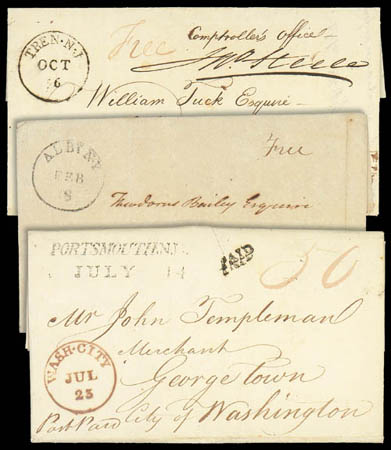 TREN·N·J
OCT
16
Free
Comptroller's Office
Jno. Steele
William Tuck Esquire
ALB·NY
FEB
8
Free
Theodorus Bailey Esquire
PORTSMOUTH N.
JULY 14
PAID
50
Mr John Templeman
Merchant
George Town
Post Paid City of Washington
WASH·CITY
JUL
23